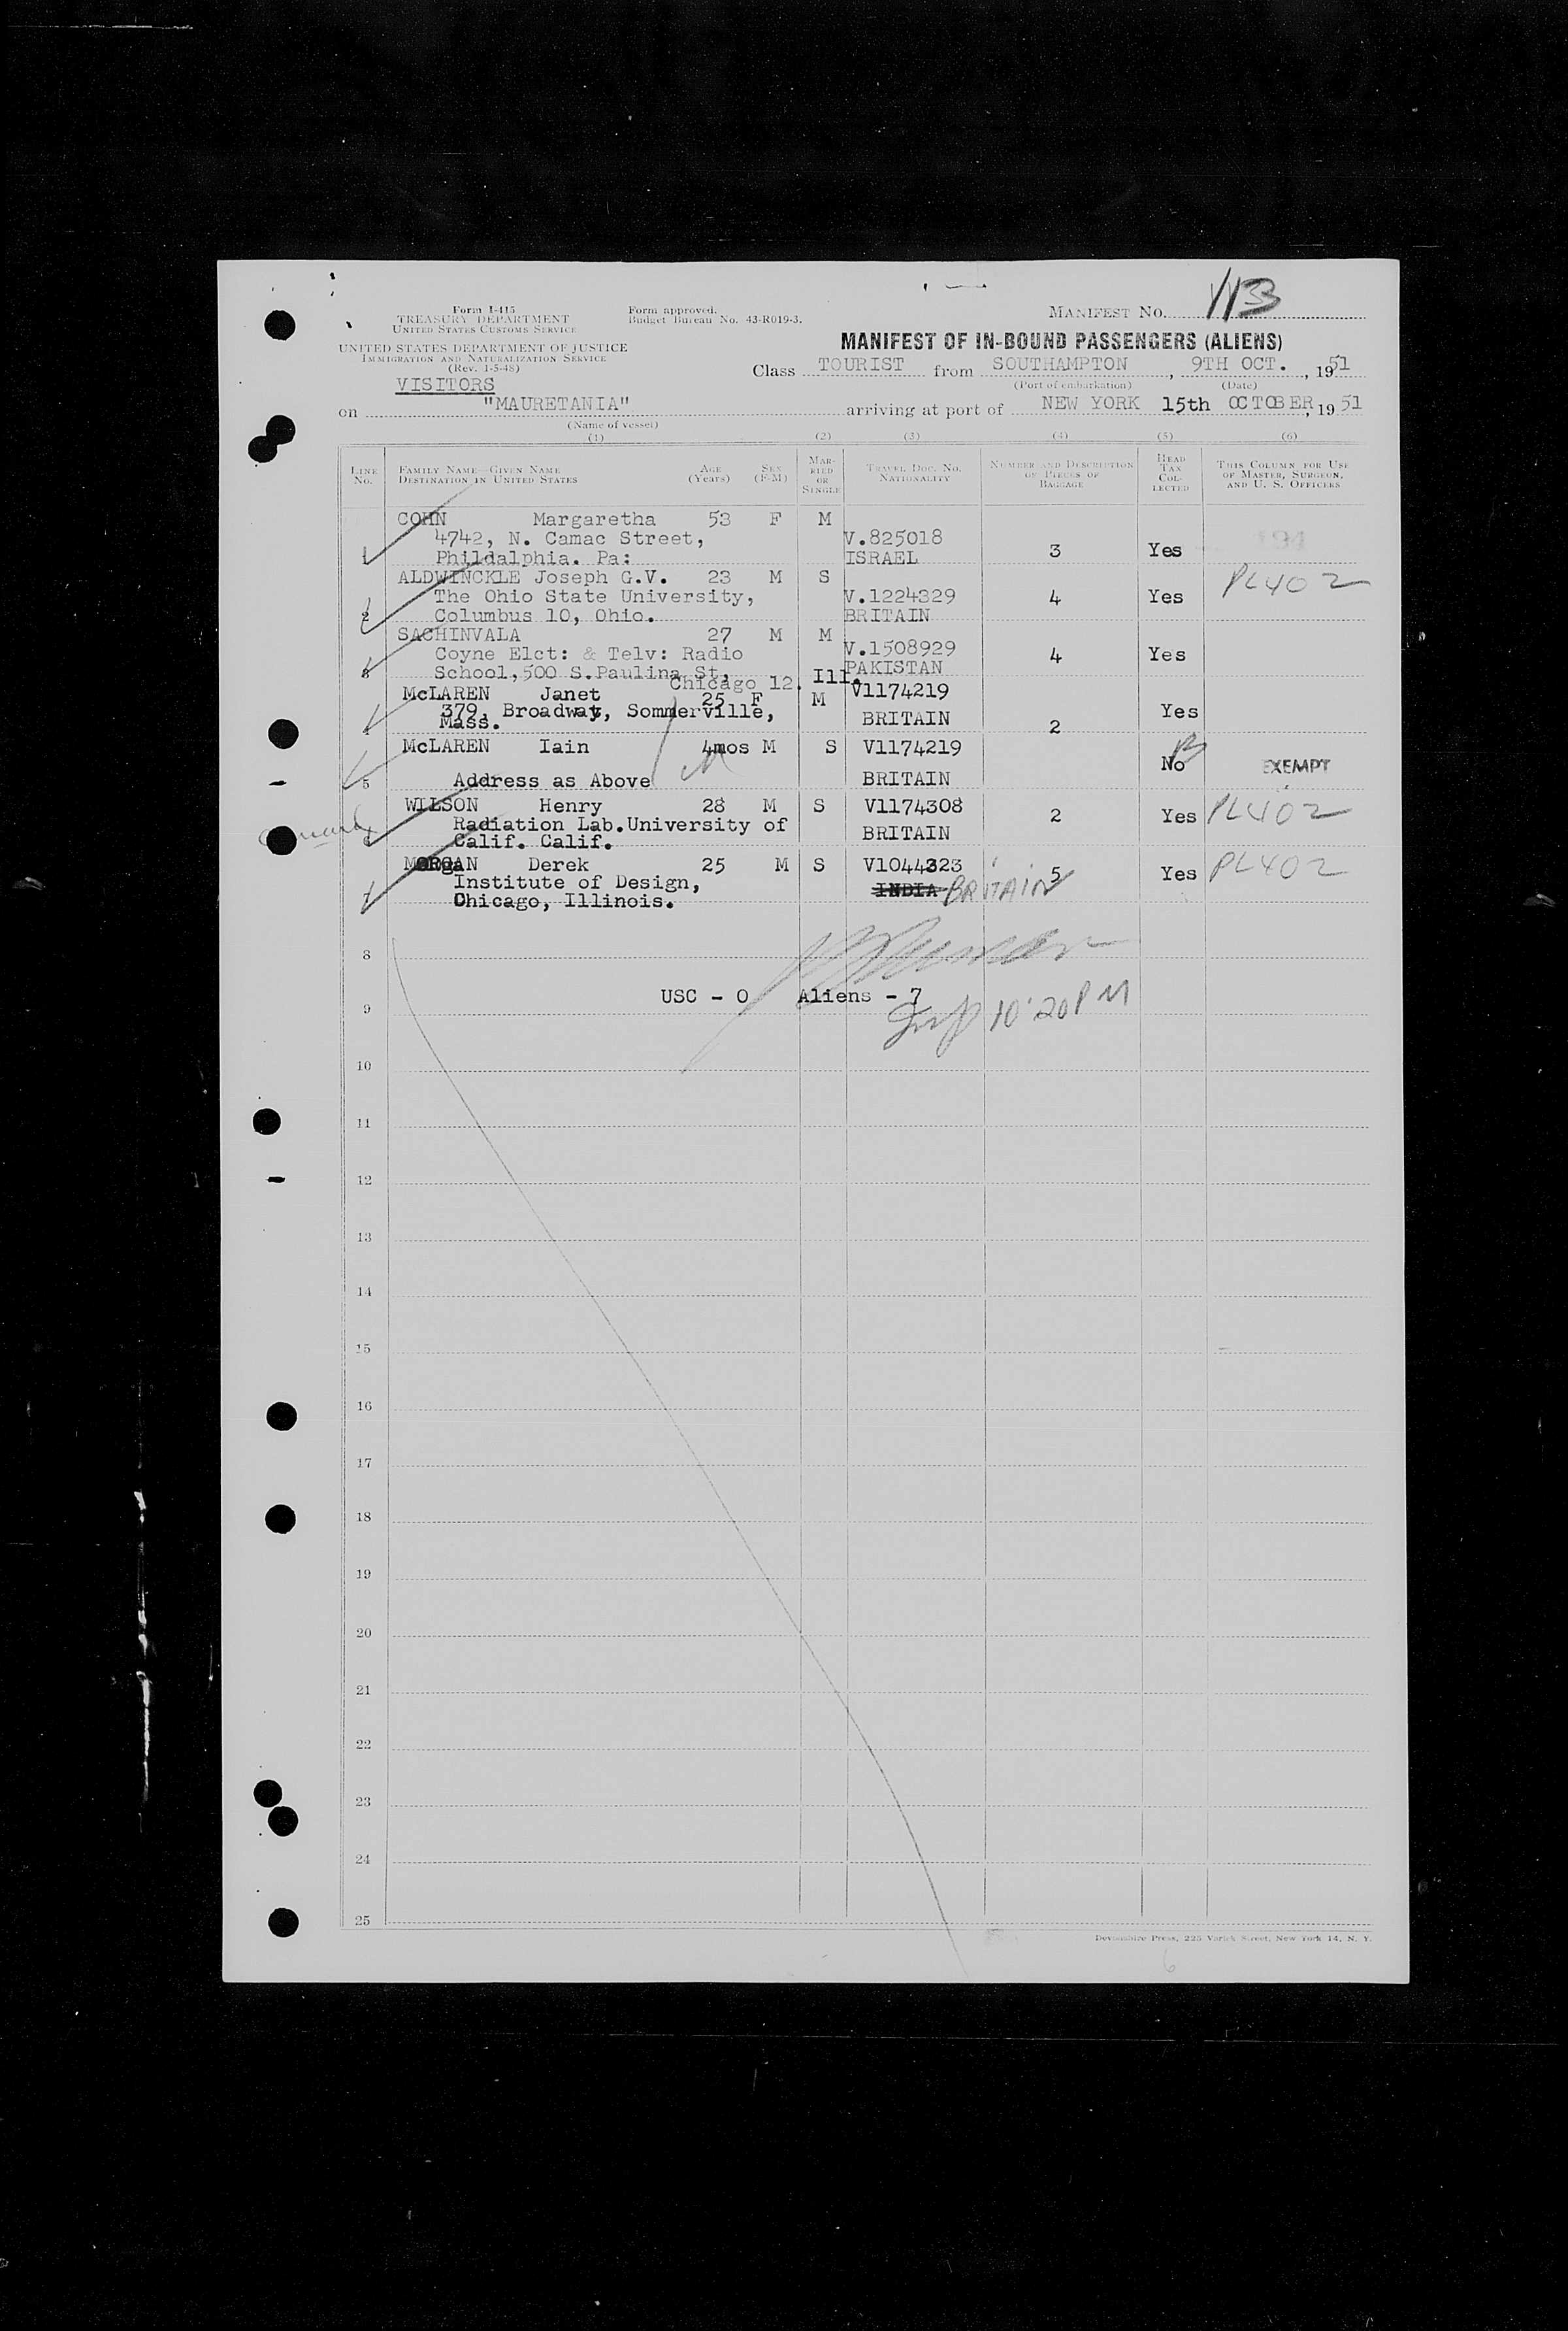 MANIFEST NO. 113
Form I-415
TREASURY DEPARTMENT
UNITED STATES CUSTOMS SERVICE
Form approved.
Budget Bureau No. 43-R019-3.
UNITED STATES DEPARTMENT OF JUSTICE
IMMIGRATION AND NATURALIZATION SERVICE
(Rev. 1-5-48)
VISITORS
MANIFEST OF IN-BOUND PASSENGERS (ALIENS)
Class TOURIST from SOUTHAMPTON, 9TH OCT., 1951
(Port of embarkation) (Date)
on "MAURETANIA" arriving at port of NEW YORK 15th OCTOBER, 1951
(Name of vessel)
(1) (2) (3) (4) (5) (6)
LINE NO. FAMILY NAME—GIVEN NAME DESTINATION IN UNITED STATES AGE (Years) SEX (F-M) MARRIED OR SINGLE TRAVEL DOC. NO. NATIONALITY NUMBER AND DESCRIPTION OF PIECES OF BAGGAGE HEAD TAX COLLECTED THIS COLUMN FOR USE OF MASTER, SURGEON, AND U. S. OFFICERS
COHN Margaretha 53 F M
4742, N. Camac Street, V.825018
1 Phildalphia. Pa: ISRAEL 3 Yes
ALDWINCKLE Joseph G.V. 23 M S PL402
The Ohio State University, V.1224329 4 Yes
2 Columbus 10, Ohio. BRITAIN
SACHINVALA 27 M M
Coyne Elct: & Telv: Radio V.1508929 4 Yes
3 School,500 S.Paulina St, PAKISTAN
Chicago 12. Ill.
McLAREN Janet 25 F M V1174219
379, Broadway, Sommerville, BRITAIN Yes
4 Mass. 2
McLAREN Iain 4mos M S V1174219
No EXEMPT
5 Address as Above BRITAIN
WILSON Henry 28 M S V1174308 2 Yes PL402
Radiation Lab.University of BRITAIN
6 Calif. Calif.
MORGAN Derek 25 M S V1044323 5 Yes PL402
Institute of Design, INDIA BRITAIN
7 Chicago, Illinois.
8
USC - 0 Aliens - 7
9
10'20PM
10
11
12
13
14
15
16
17
18
19
20
21
22
23
24
25
Devonshire Press, 225 Varick Street, New York 14, N. Y.